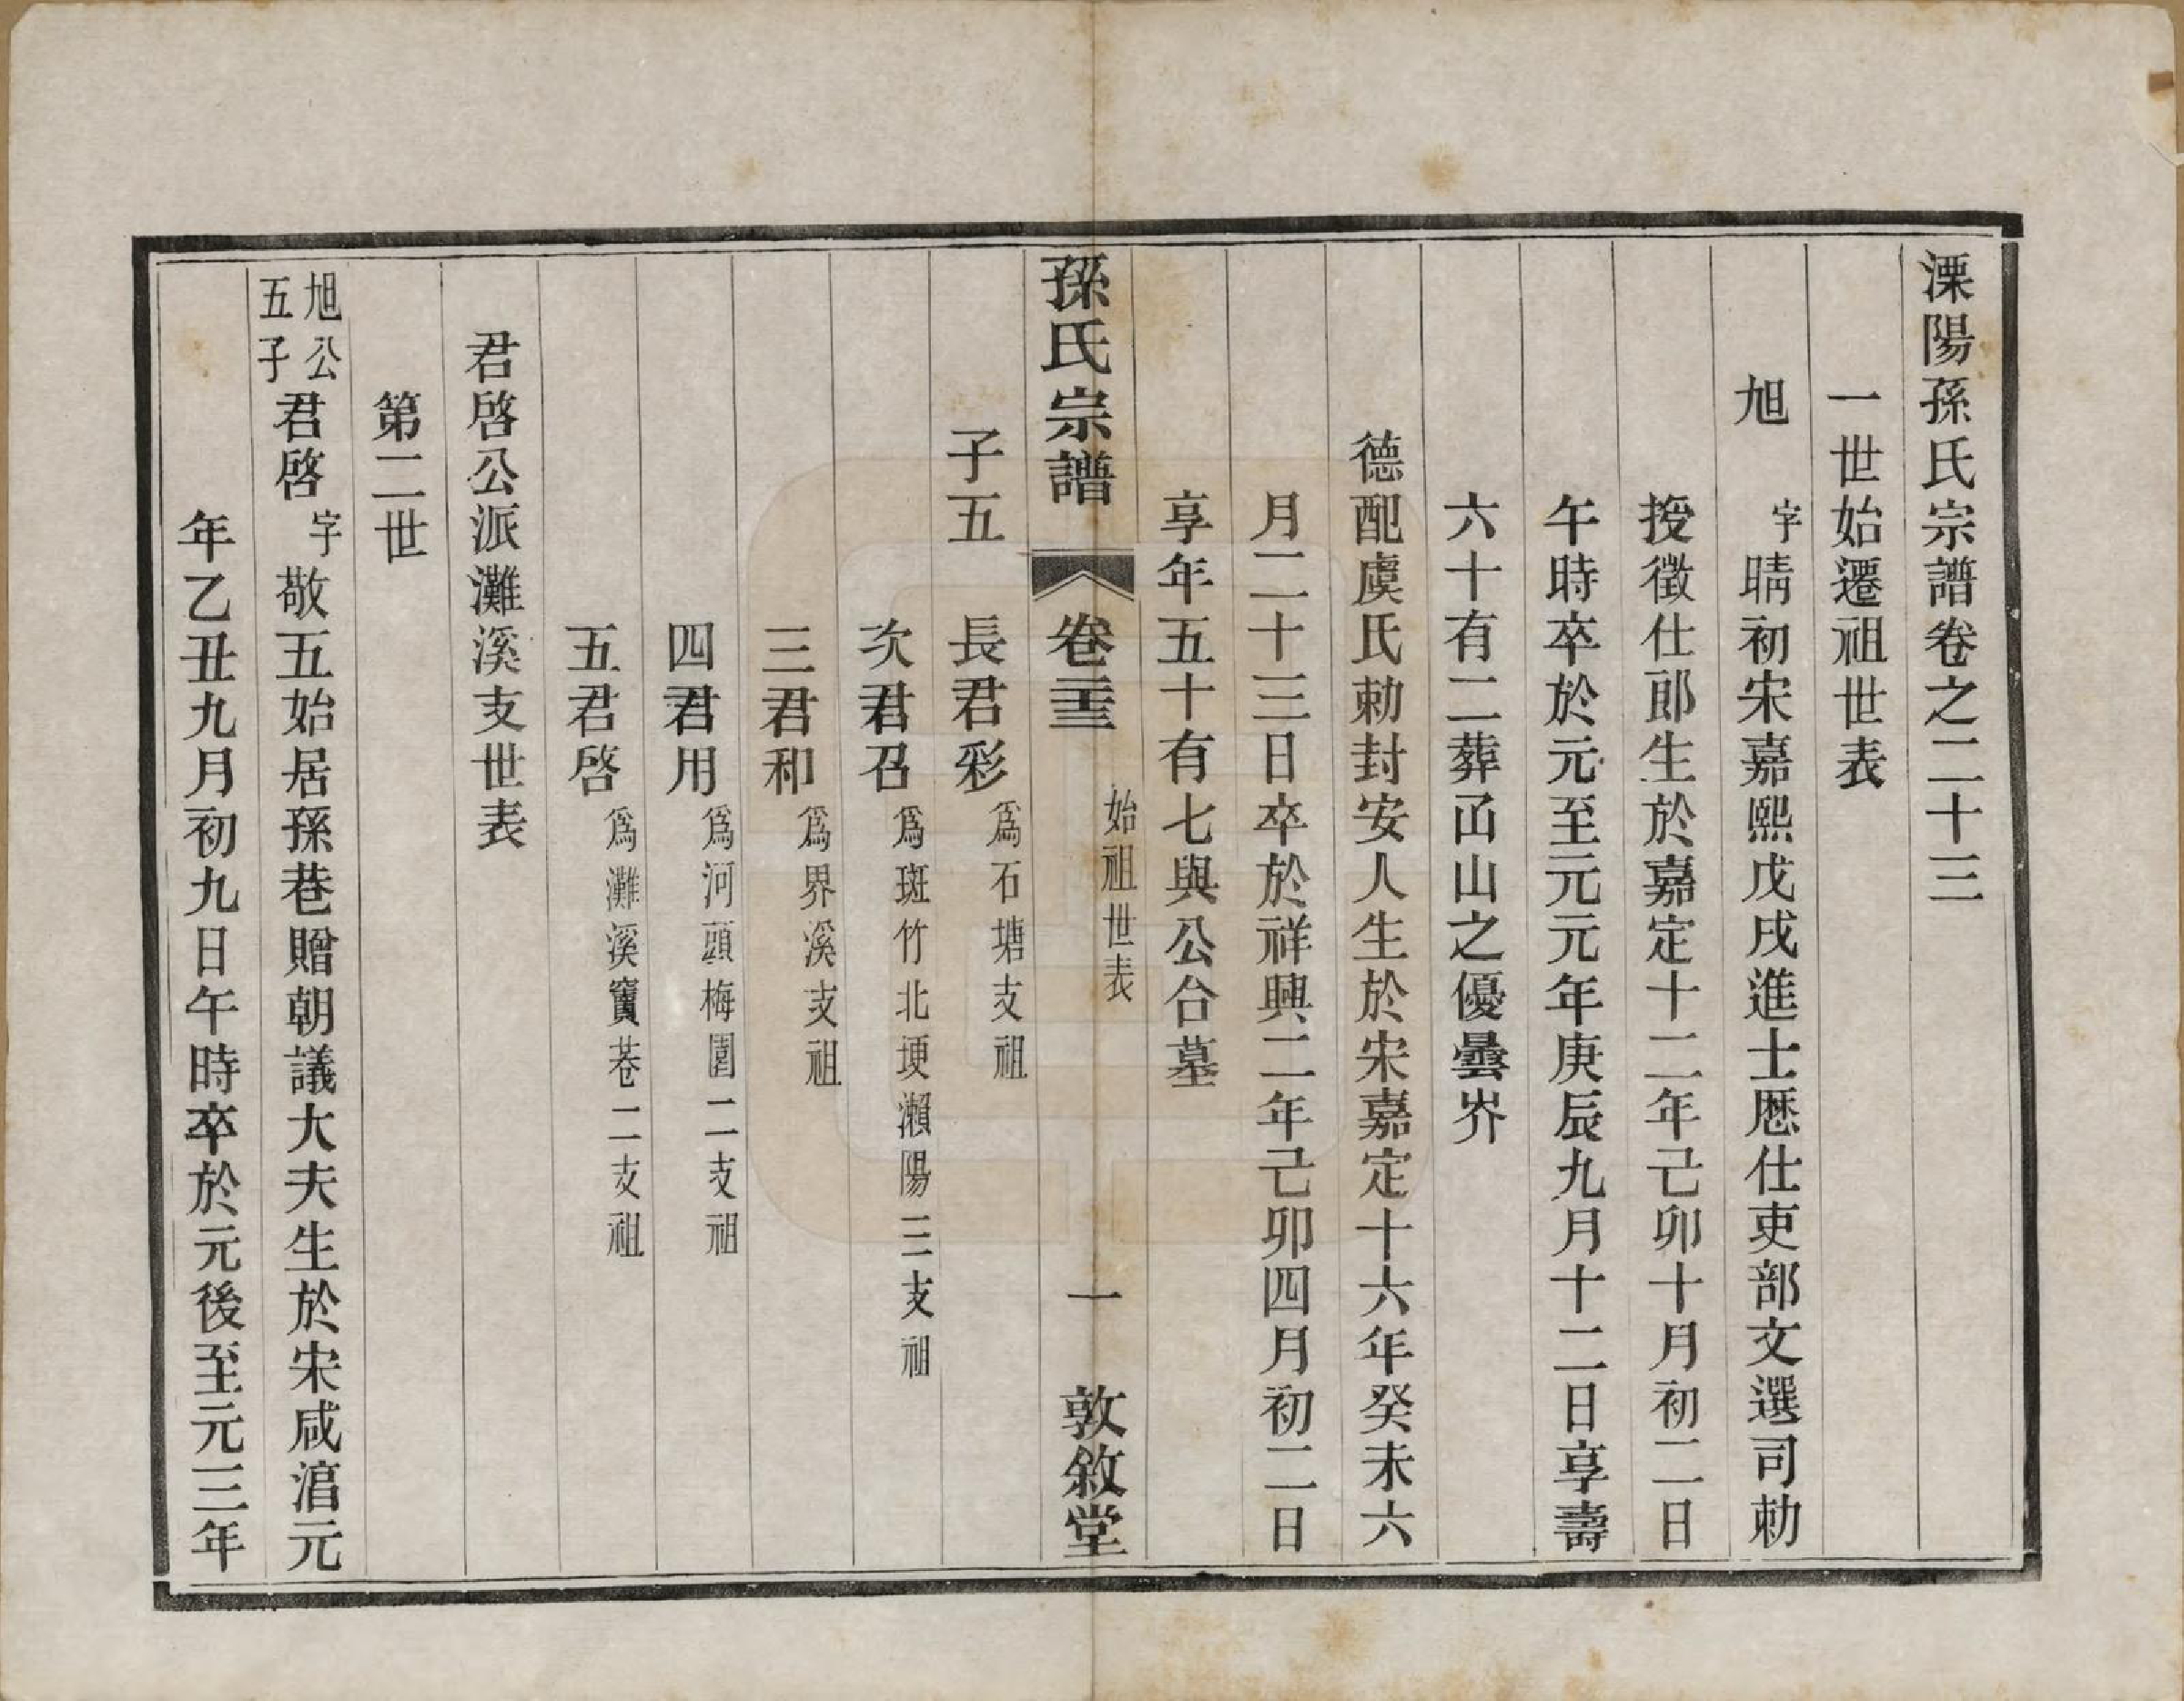 溧陽孫氏宗譜卷之二十三
一世始遷祖世表
旭　字晴初宋嘉熙戊戌進士歷仕吏部文選司勅
授徵仕郎生於嘉定十二年己卯十月初二日
午時卒於元至元元年庚辰九月十二日享壽
六十有二葬函山之優曇岕
德配虞氏勅封安人生於宋嘉定十六年癸未六
月二十三日卒於祥興二年己卯四月初二日
享年五十有七與公合墓
孫氏宗譜　卷二十三　始祖世表　一　敦敘堂
子五　長君彩爲石塘支祖
次君召爲斑竹北埂瀨陽三支祖
三君和爲界溪支祖
四君用爲河頭梅園二支祖
五君啓爲灘溪竇巷二支祖
君啓公派灘溪支世表
第二世
旭公五子君啓字敬五始居孫巷贈朝議大夫生於宋咸湻元
年乙丑九月初九日午時卒於元後至元三年